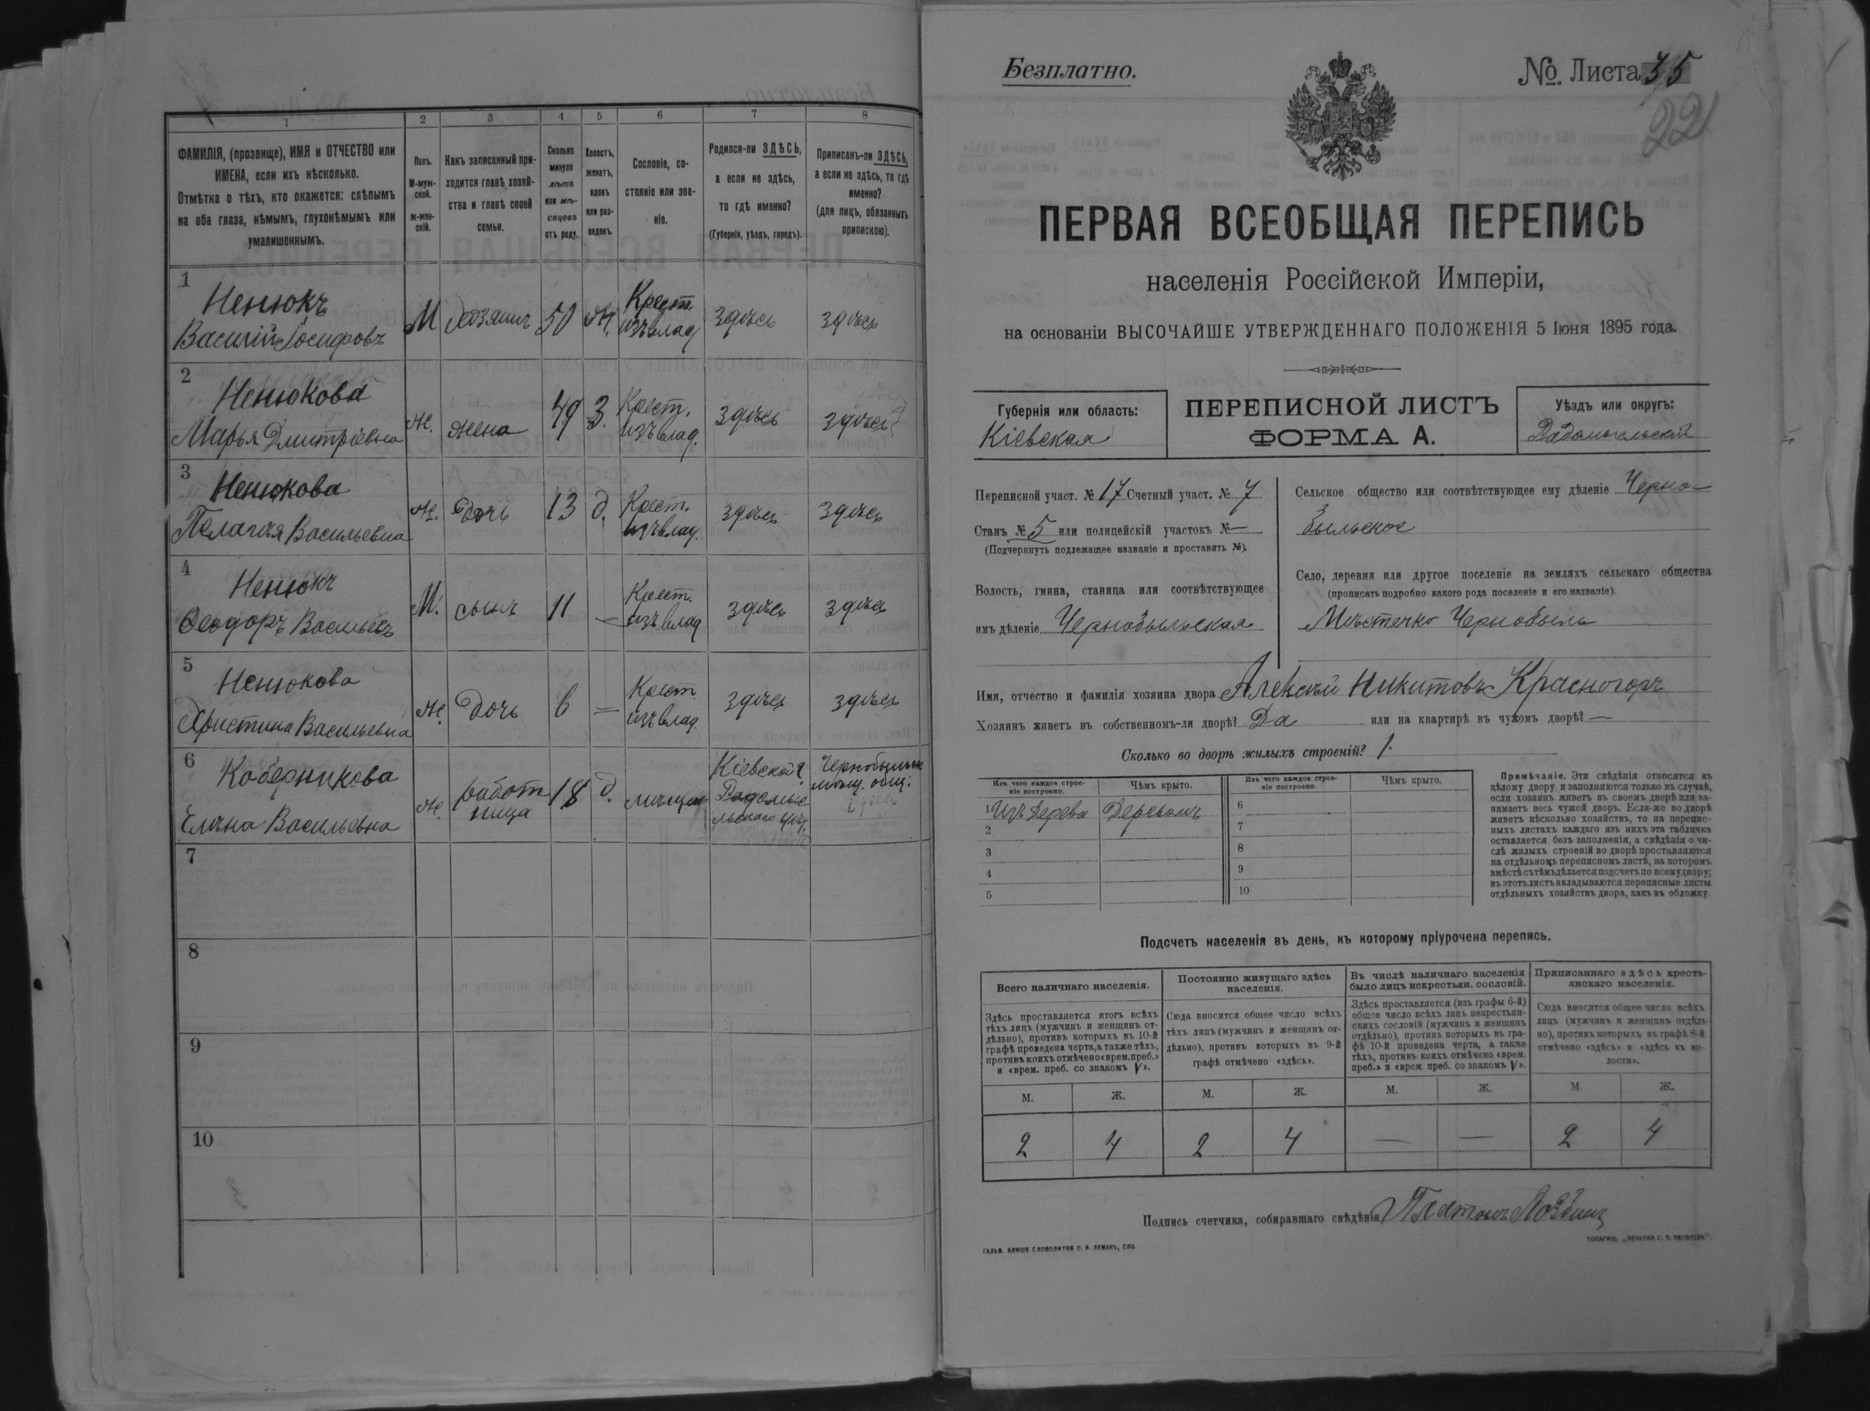 1
2
3
4
5
6
7
8
ФАМИЛІЯ, (прозвище), ИМЯ и ОТЧЕСТВО или
ИМЕНА, если ихъ нѣсколько.
Отмѣтка о тѣхъ, кто окажется: слѣпымъ
на оба глаза, нѣмымъ, глухонѣмымъ или
умалишеннымъ.
Полъ.
М-муж-
ской.
Ж-жен-
скій.
Какъ записанный при-
ходится главѣ хозяй-
ства и главѣ своей
семьи.
Сколько
минуло
лѣтъ
или мѣ-
сяцевъ
отъ роду.
Холостъ,
женатъ,
вдовъ
или раз-
веденъ.
Сословіе, со-
стояніе или зва-
ніе.
Родился-ли ЗДѢСЬ,
а если не здѣсь,
то гдѣ именно?
(Губернія, уѣздъ, городъ).
Приписанъ-ли ЗДѢСЬ,
а если не здѣсь, то гдѣ
именно?
(для лицъ, обязанныхъ
припискою).
1
Ненюкъ
Василій Іосифовъ
М
хозяинъ
50
Ж.
Крест.
изъ влад.
здѣсь
здѣсь
2
Ненюкова
Марья Дмитріевна
Ж.
жена
49
З.
Крест.
изъ влад.
здѣсь
здѣсь
3
Ненюкова
Пелагія Васильевна
Ж.
дочь
13
д.
Крест.
изъ влад.
здѣсь
здѣсь
4
Ненюкъ
Ѳеодоръ Васильевъ
М.
сынъ
11
—
Крест.
изъ влад.
здѣсь
здѣсь
5
Ненюкова
Христина Васильевна
Ж.
дочь
6
=
Крест
изъ влад.
здѣсь
здѣсь
6
Коберникова
Елена Васильевна
Ж.
работ
ница
18
д.
Кіевской г.
Радомы
льскаго уѣз.
7
8
9
10
Безплатно.
№ Листа 35
221
ПЕРВАЯ ВСЕОБЩАЯ ПЕРЕПИСЬ
населенія Россійской Имперіи,
на основаніи ВЫСОЧАЙШЕ УТВЕРЖДЕННАГО ПОЛОЖЕНІЯ 5 Іюня 1895 года.
Губернія или область:
Кіевская
ПЕРЕПИСНОЙ ЛИСТЪ
ФОРМА А.
Уѣздъ или округъ:
Радомысльскій
Переписной участ. № 17 Счетный участ. № 7
Станъ № 5 или полицейскій участокъ № —
(Подчеркнуть подлежащее названіе и проставить №).
Волость, гмина, станица или соотвѣтствующее
имъ дѣленіе Чернобыльская
Сельское общество или соотвѣтствующее ему дѣленіе Черно-
быльское
Село, деревня или другое поселеніе на земляхъ сельскаго общества
(прописать подробно какого рода поселеніе и его названіе).
Мѣстечко Чернобыль
Имя, отчество и фамилія хозяина двора Алексѣй Никитовъ Красногоръ
Хозяинъ живетъ въ собственномъ-ли дворѣ? Да или на квартирѣ въ чужомъ дворѣ? —
Сколько во дворѣ жилыхъ строеній? 1.
Изъ чего каждое строе-
ніе построено.
Чѣмъ крыто.
Изъ чего каждое строе-
ніе построено.
Чѣмъ крыто.
1 Изъ Дерева Деревомъ
2
3
4
5
6
7
8
9
10
Примѣчаніе. Эти свѣдѣнія относятся къ
цѣлому двору и заполняются только въ случаѣ,
если хозяинъ живетъ въ своемъ дворѣ или за-
нимаетъ весь чужой дворъ. Если-же во дворѣ
живетъ нѣсколько хозяйствъ, то на перепис-
ныхъ листахъ каждаго изъ нихъ эта табличка
оставляется безъ заполненія, а свѣдѣнія о чи-
слѣ жилыхъ строеній во дворѣ проставляются
на отдѣльномъ переписномъ листѣ, на которомъ
вмѣстѣ съ тѣмъ дѣлается подсчетъ по всему двору;
въ этотъ листъ вкладываются переписные листы
отдѣльныхъ хозяйствъ двора, какъ въ обложку.
Подсчетъ населенія въ день, къ которому пріурочена перепись.
Всего наличнаго населенія.
Постоянно живущаго здѣсь
населенія.
Въ числѣ наличнаго населенія
было лицъ некрестьян. сословій.
Приписаннаго здѣсь кресть-
янскаго населенія.
Здѣсь проставляется итогъ всѣхъ
тѣхъ лицъ (мужчинъ и женщинъ от-
дѣльно), противъ которыхъ въ 10-й
графѣ проведена черта, а также тѣхъ,
противъ коихъ отмѣчено «врем. преб.»
и «врем. преб. со знакомъ V».
Сюда вносится общее число всѣхъ
тѣхъ лицъ (мужчинъ и женщинъ от-
дѣльно), противъ которыхъ въ 9-й
графѣ отмѣчено «здѣсь».
Здѣсь проставляется (изъ графы 6-й)
общее число всѣхъ лицъ некрестьян-
скихъ сословій (мужчинъ и женщинъ
отдѣльно), противъ которыхъ въ гра-
фѣ 10-й проведена черта, а также
тѣхъ, противъ коихъ отмѣчено «врем.
преб.» и «врем. преб. со знакомъ V».
Сюда вносится общее число всѣхъ
лицъ (мужчинъ и женщинъ отдѣль-
но), противъ которыхъ въ графѣ 8-й
отмѣчено «здѣсь» и «здѣсь въ во-
лости».
М. Ж. М. Ж. М. Ж. М. Ж.
2 4 2 4 — — 2 4
Подпись счетчика, собиравшаго свѣдѣнія Платонъ
ГАЛЬВ. КЛИШЕ СЛОВОЛИТНИ О. И. ЛЕМАНЪ, СПБ
ТОВАРИЩ. „ПЕЧАТНЯ С. П. ЯКОВЛЕВА".